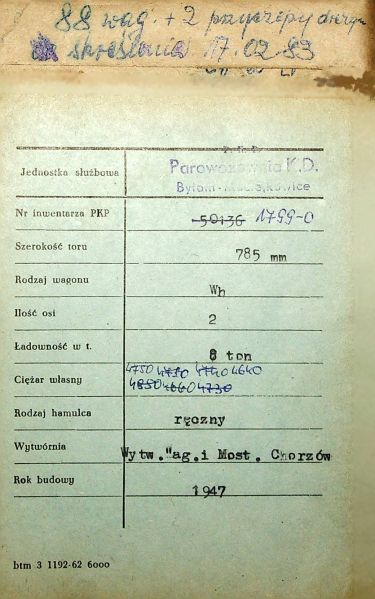 88 wag. + 2 przyczepy
skreślenia 17.02.83
P.K.P.
Parowozownia K.D.
Jednostka służbowa
Bytom-Maciejkowice
Nr inwentarza PKP 50136 1799-0
Szerokość toru 785 mm
Rodzaj wagonu Wh
Ilość osi 2
Ładowność w t. 8 ton
4750 4710 4740 4640
Ciężar własny 4850 4660 4730
Rodzaj hamulca ręczny
Wytwórnia Wytw."ag.i Most. Chorzów
Rok budowy 1947
btm 3 1192-62 6000